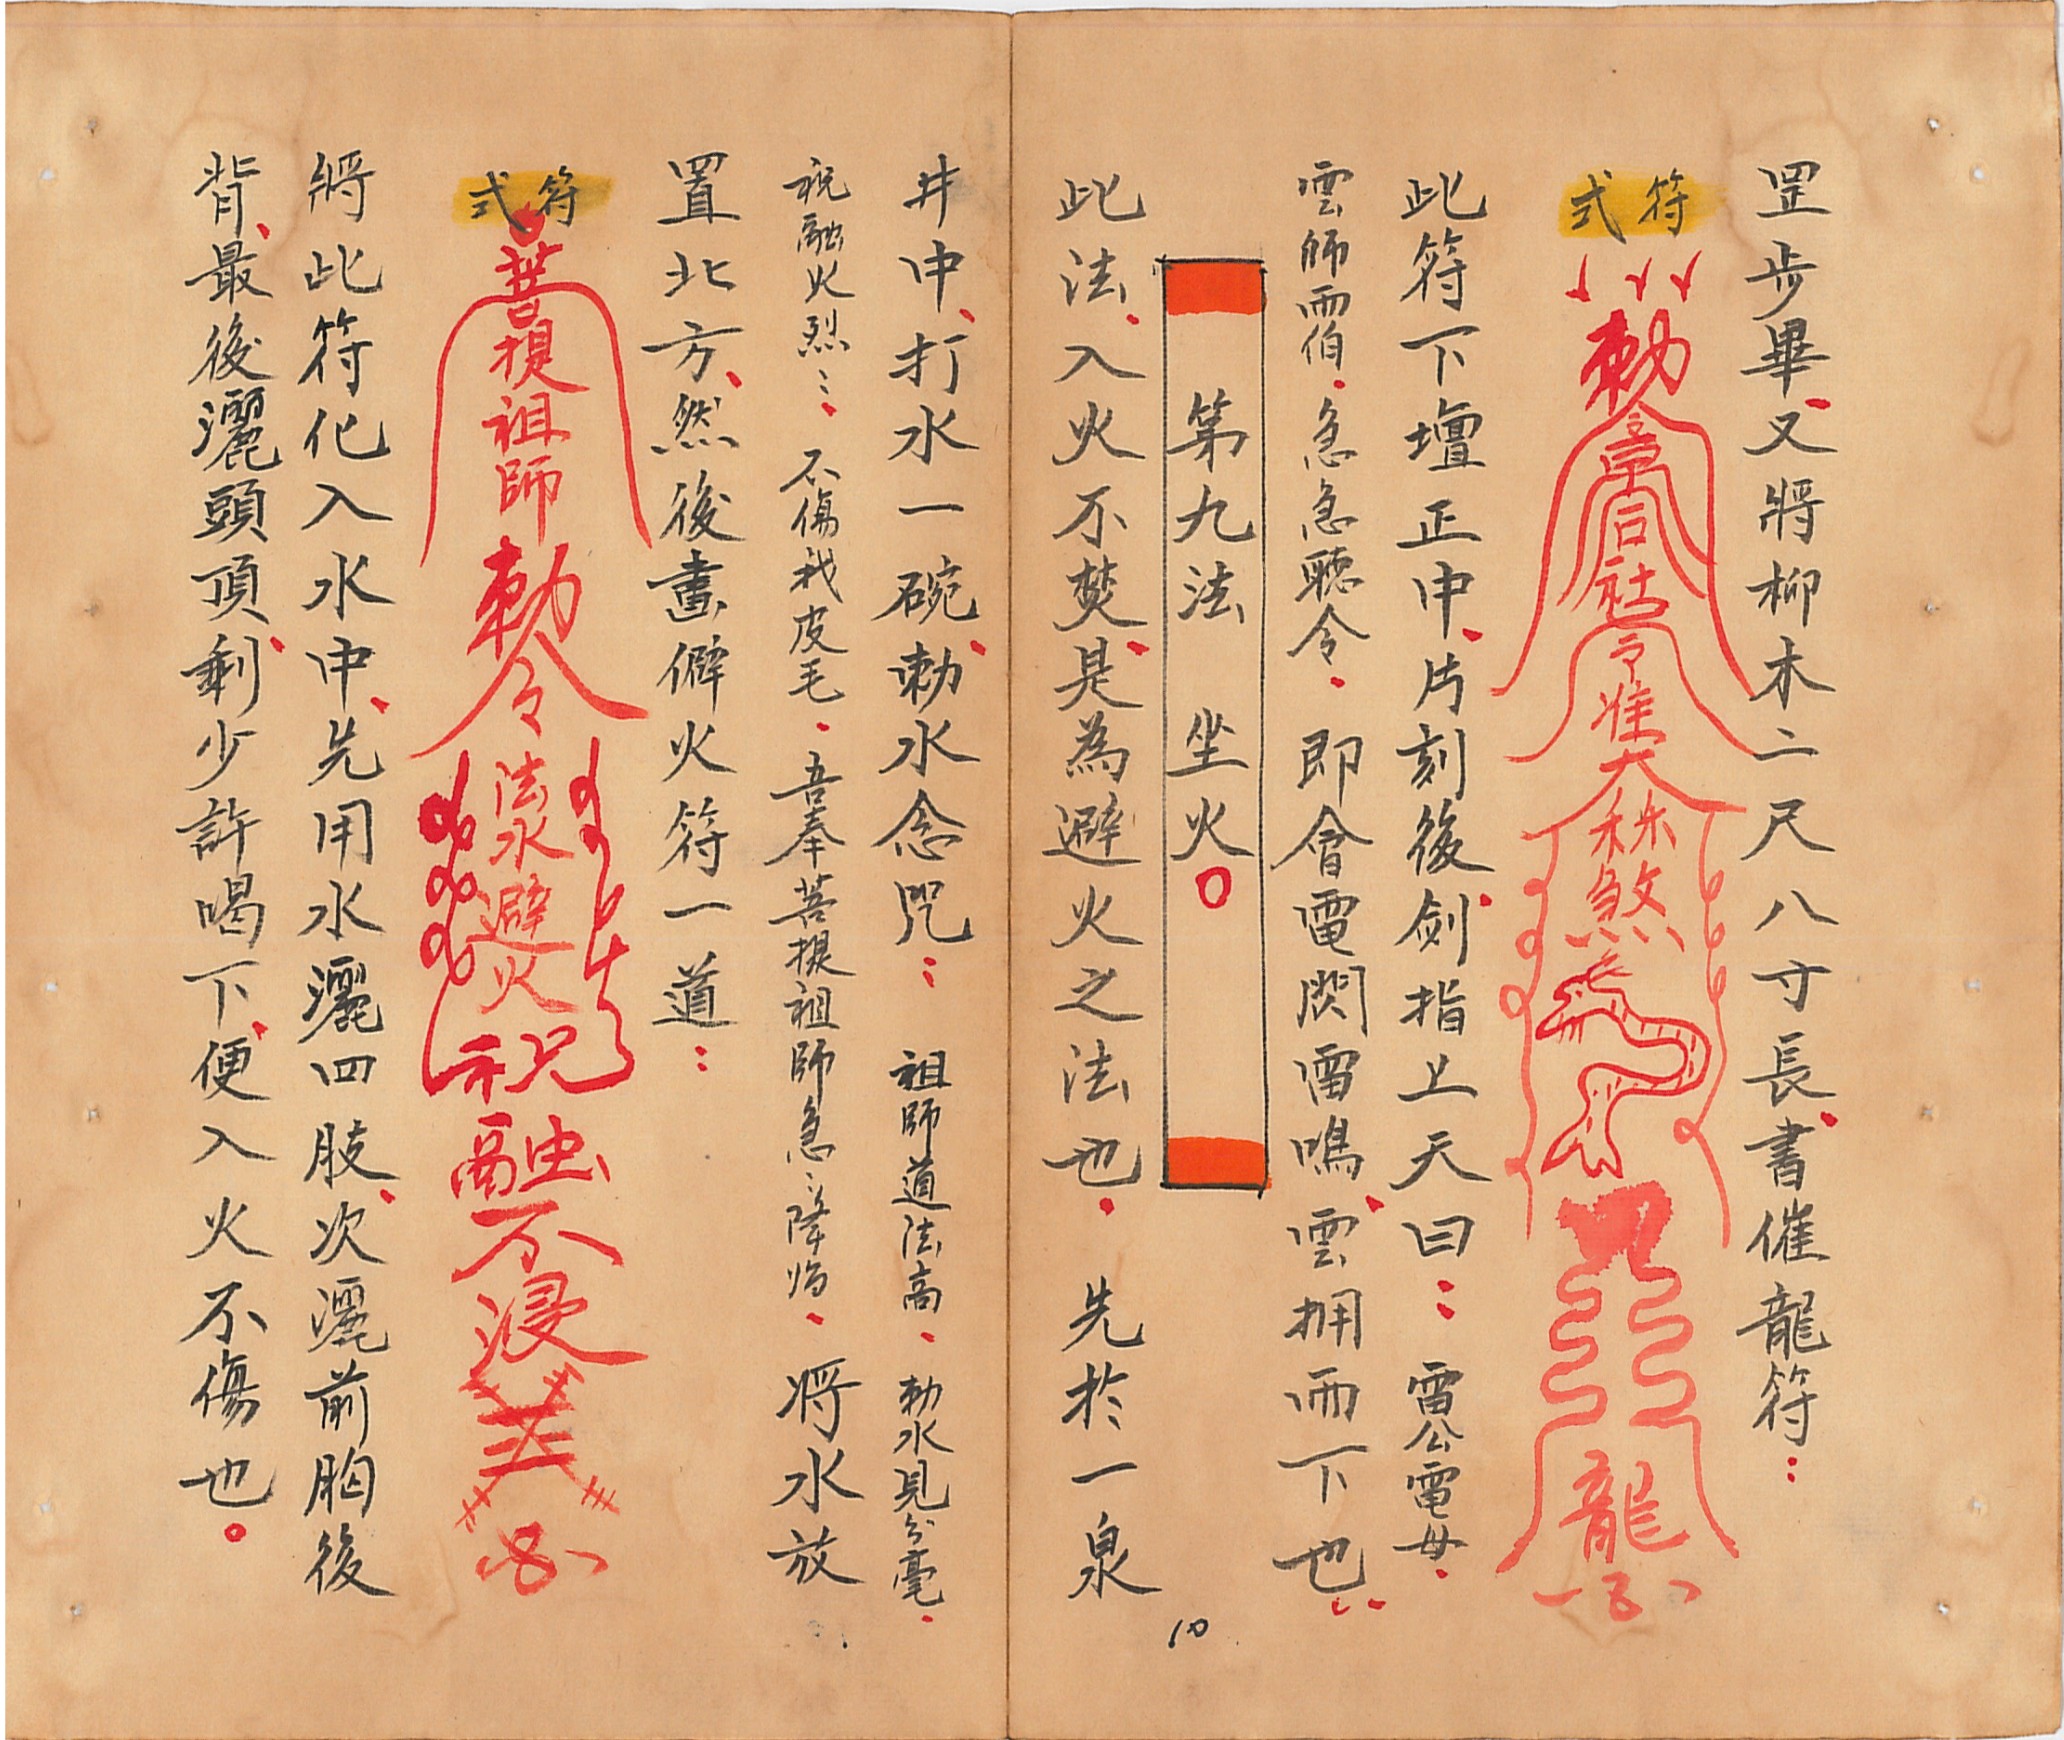 罡步畢、又將柳木二尺八寸長、書催龍符：
符式
勅
龍
此符下壇正中、片刻後、劍指上天曰：雷公電母．
雲師雨伯．急急聽令．即會電閃雷鳴、雲拥雨下也。
第九法 坐火○
此法、入火不焚、是為避火之法也．先於一泉
井中、打水一碗、勅水念咒：祖師道法高、勅水見分毫．
祝融火烈〻．不傷我皮毛．吾奉菩提祖師急〻降临．将水放
置北方、然後畫僻火符一道：
符式
菩提祖師
勅令
法水避火
祝融不浸
將此符化入水中、先用水灑四肢、次灑前胸後
背、最後灑頭頂、剩少許喝下、便入火不傷也。
10